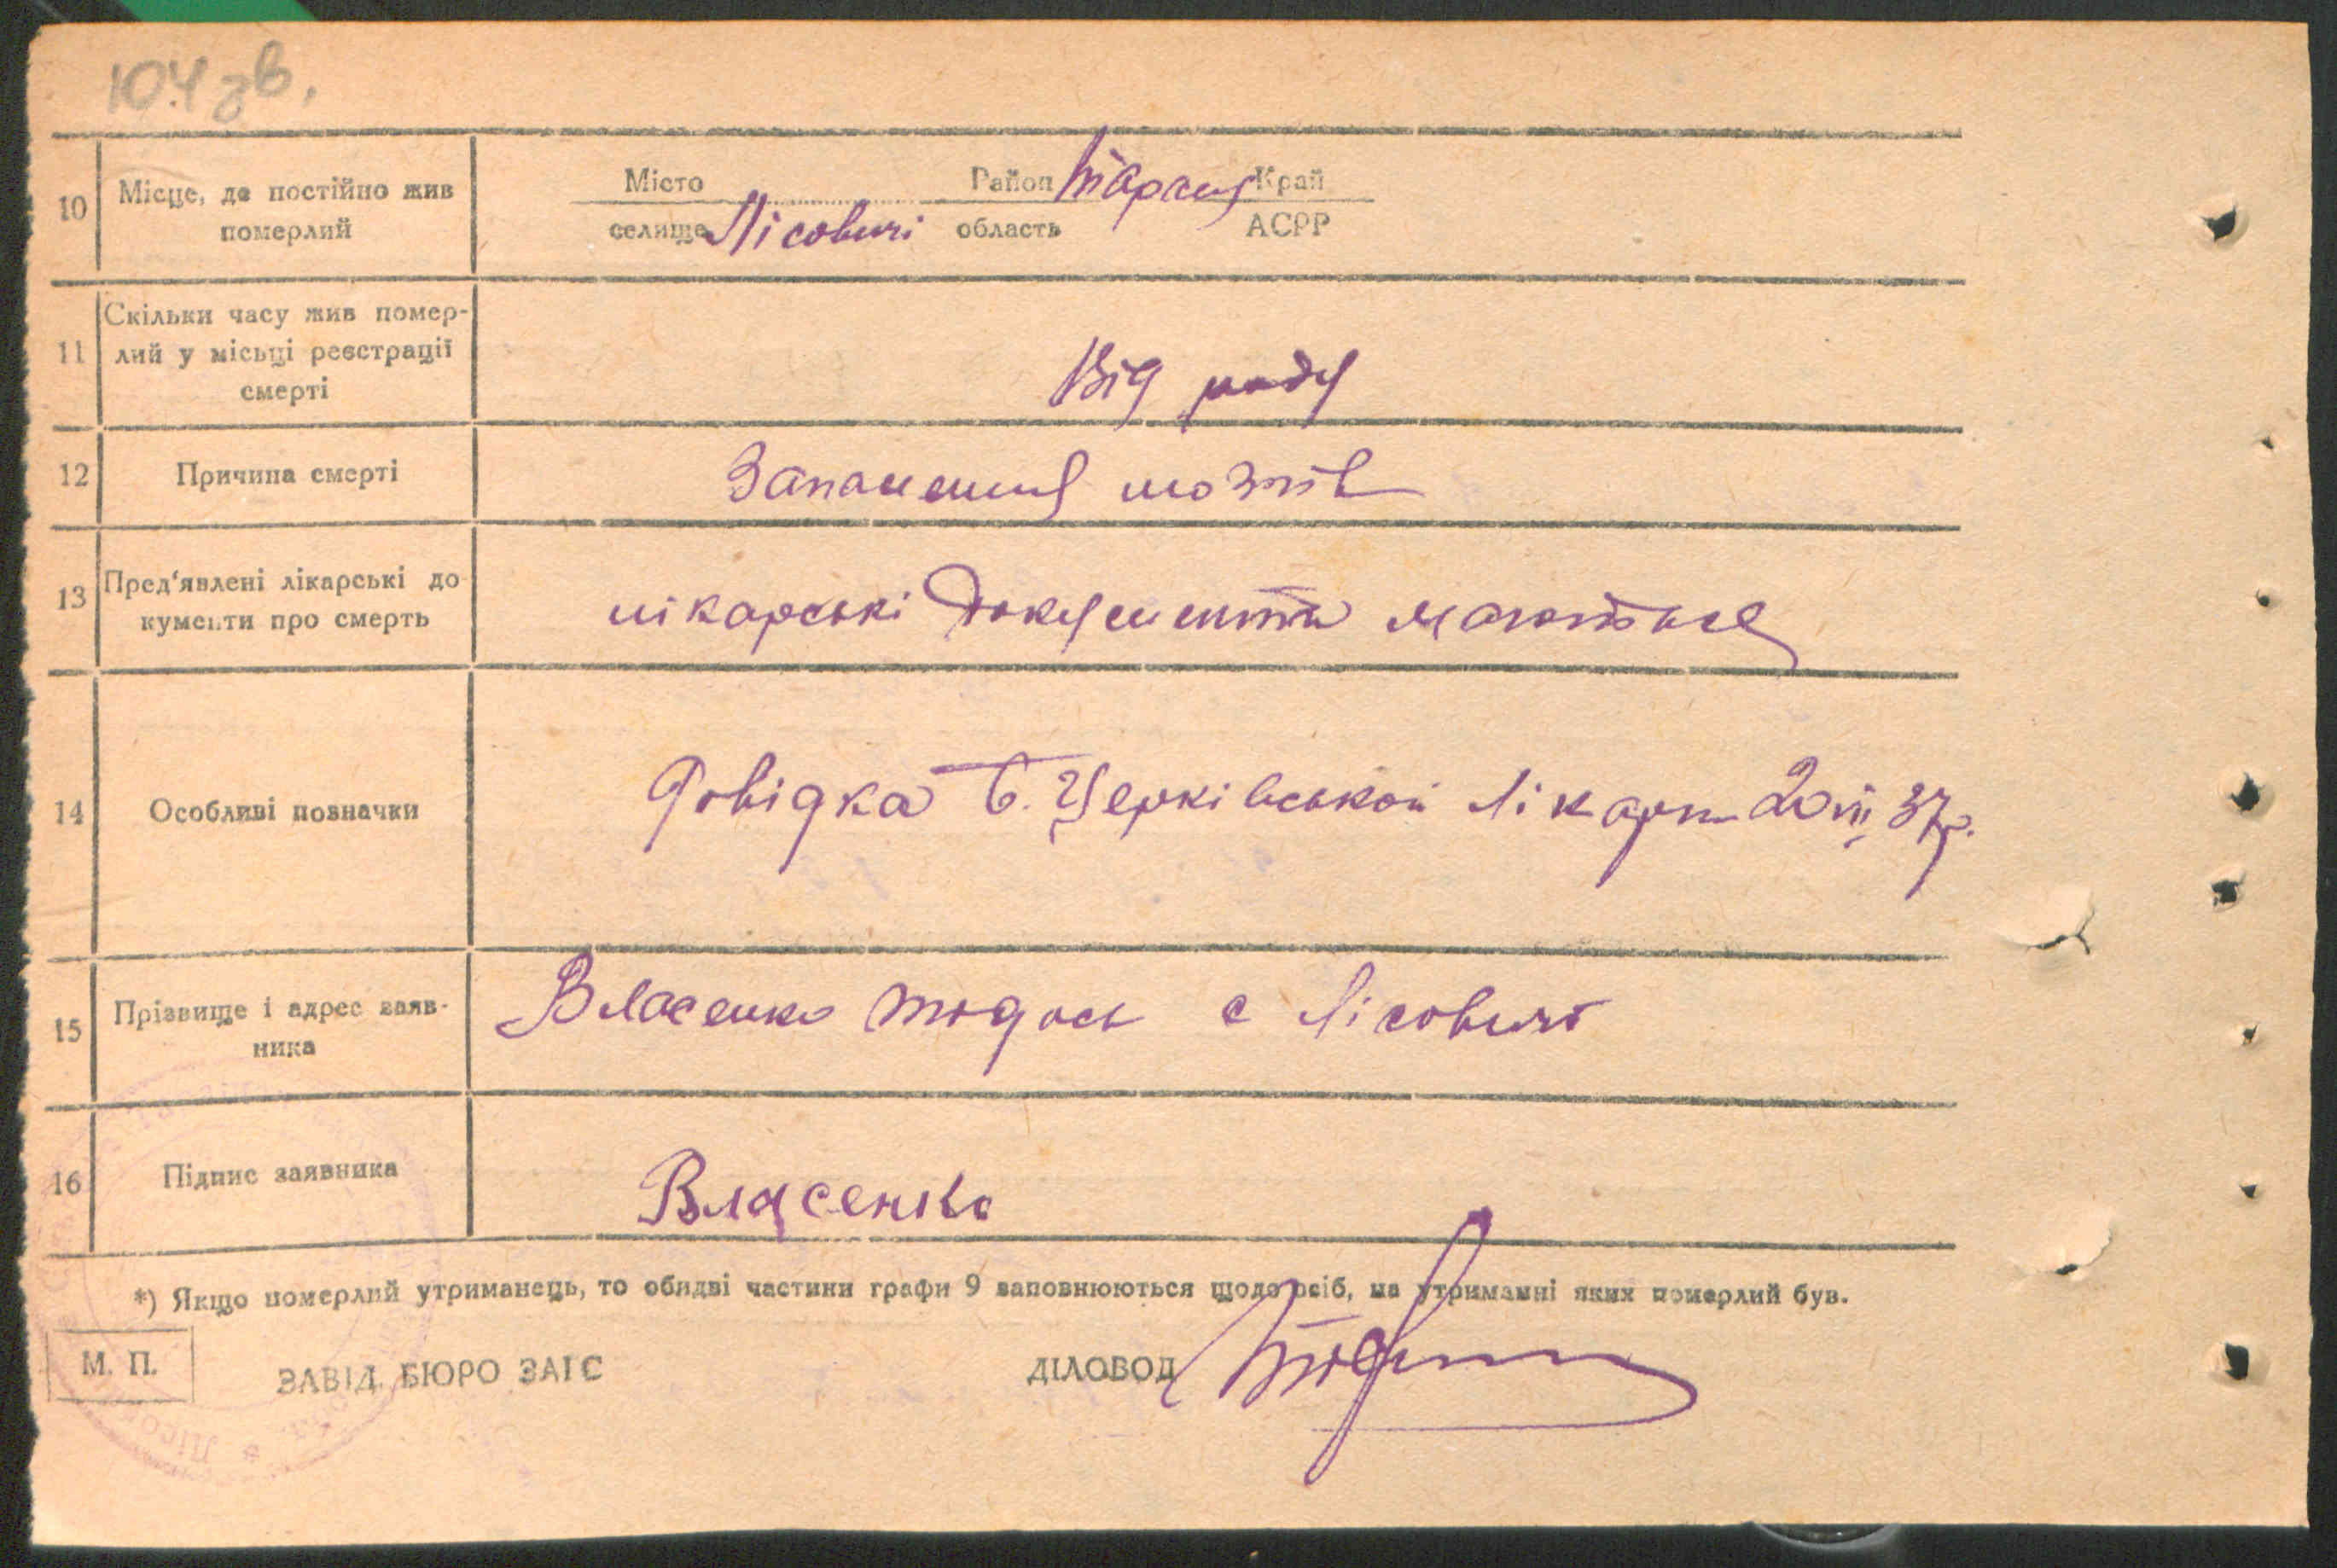 104 зв.
10 Місце, де постійно жив померлий
Місто Район Тараща Край
селище Лісовичі область АСРР
11 Скільки часу жив помер-
лий у місьці реєстрації
смерті
Від роду
12 Причина смерті Запалення мозків
13 Пред'явлені лікарські до
кументи про смерть
лікарські документи маються
14 Особливі позначки Довідка Б. Церківської Лікарн 20 VII 37р.
15 Прізвище і адрес заяв-
ника
Власенко Тодось с Лісовичі
16 Підпис заявника Власенко
*) Якщо померлий утриманець, то обидві частини графи 9 заповнюються щодо осіб, на утриманні яких померлий був.
М. П. ЗАВІД. БЮРО ЗАГС ДІЛОВОД